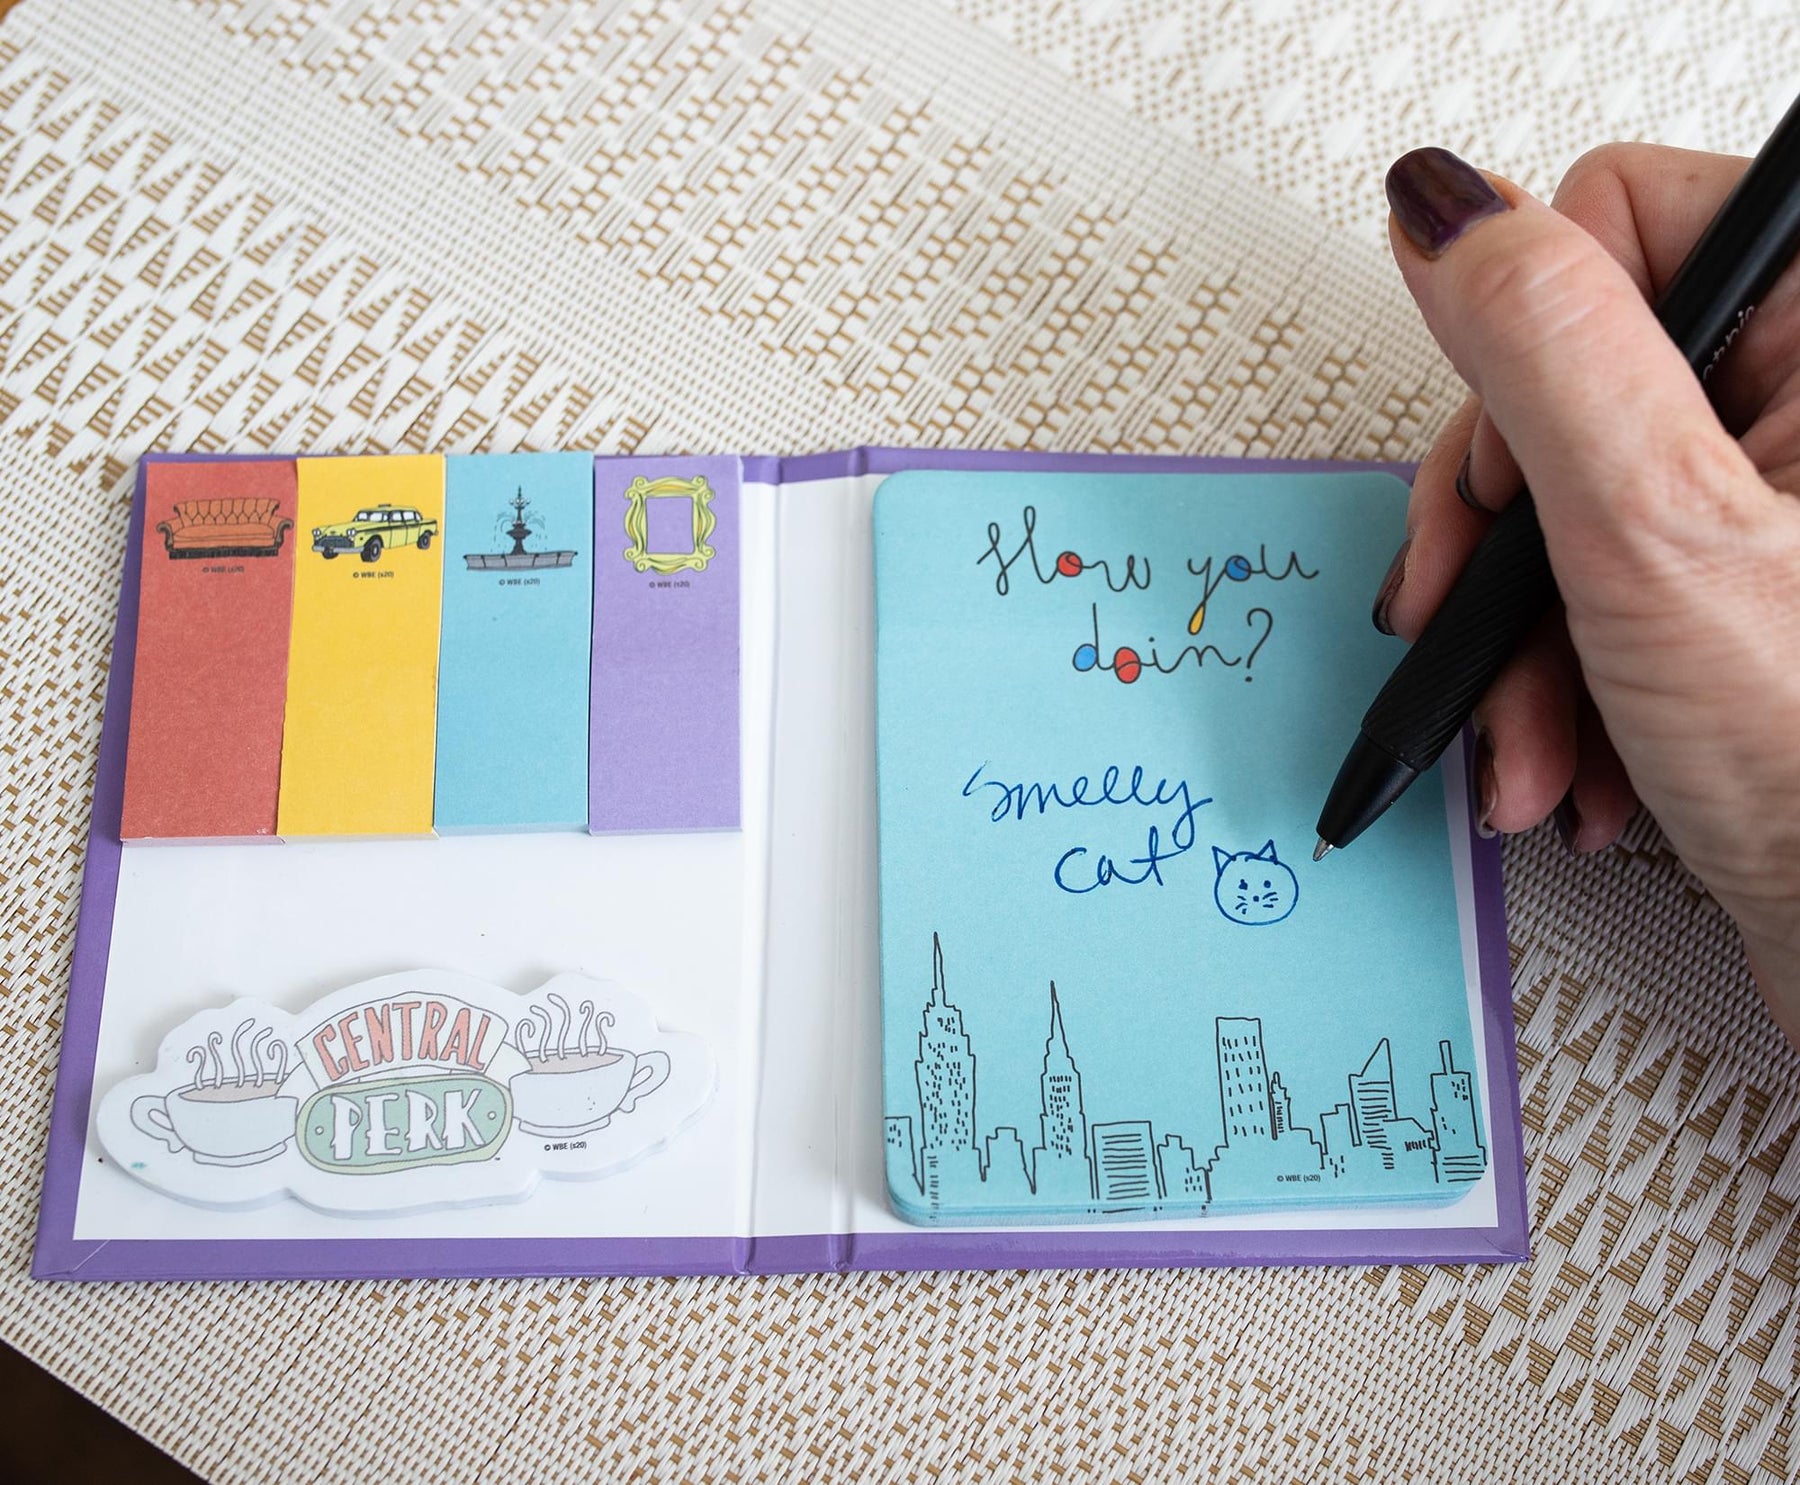 © WBE (s20)
© WBE (s20)
© WBE (s20)
© WBE (s20)
How you
doin?
smelly
cat
CENTRAL
PERK
™
© WBE (s20)
© WBE (s20)